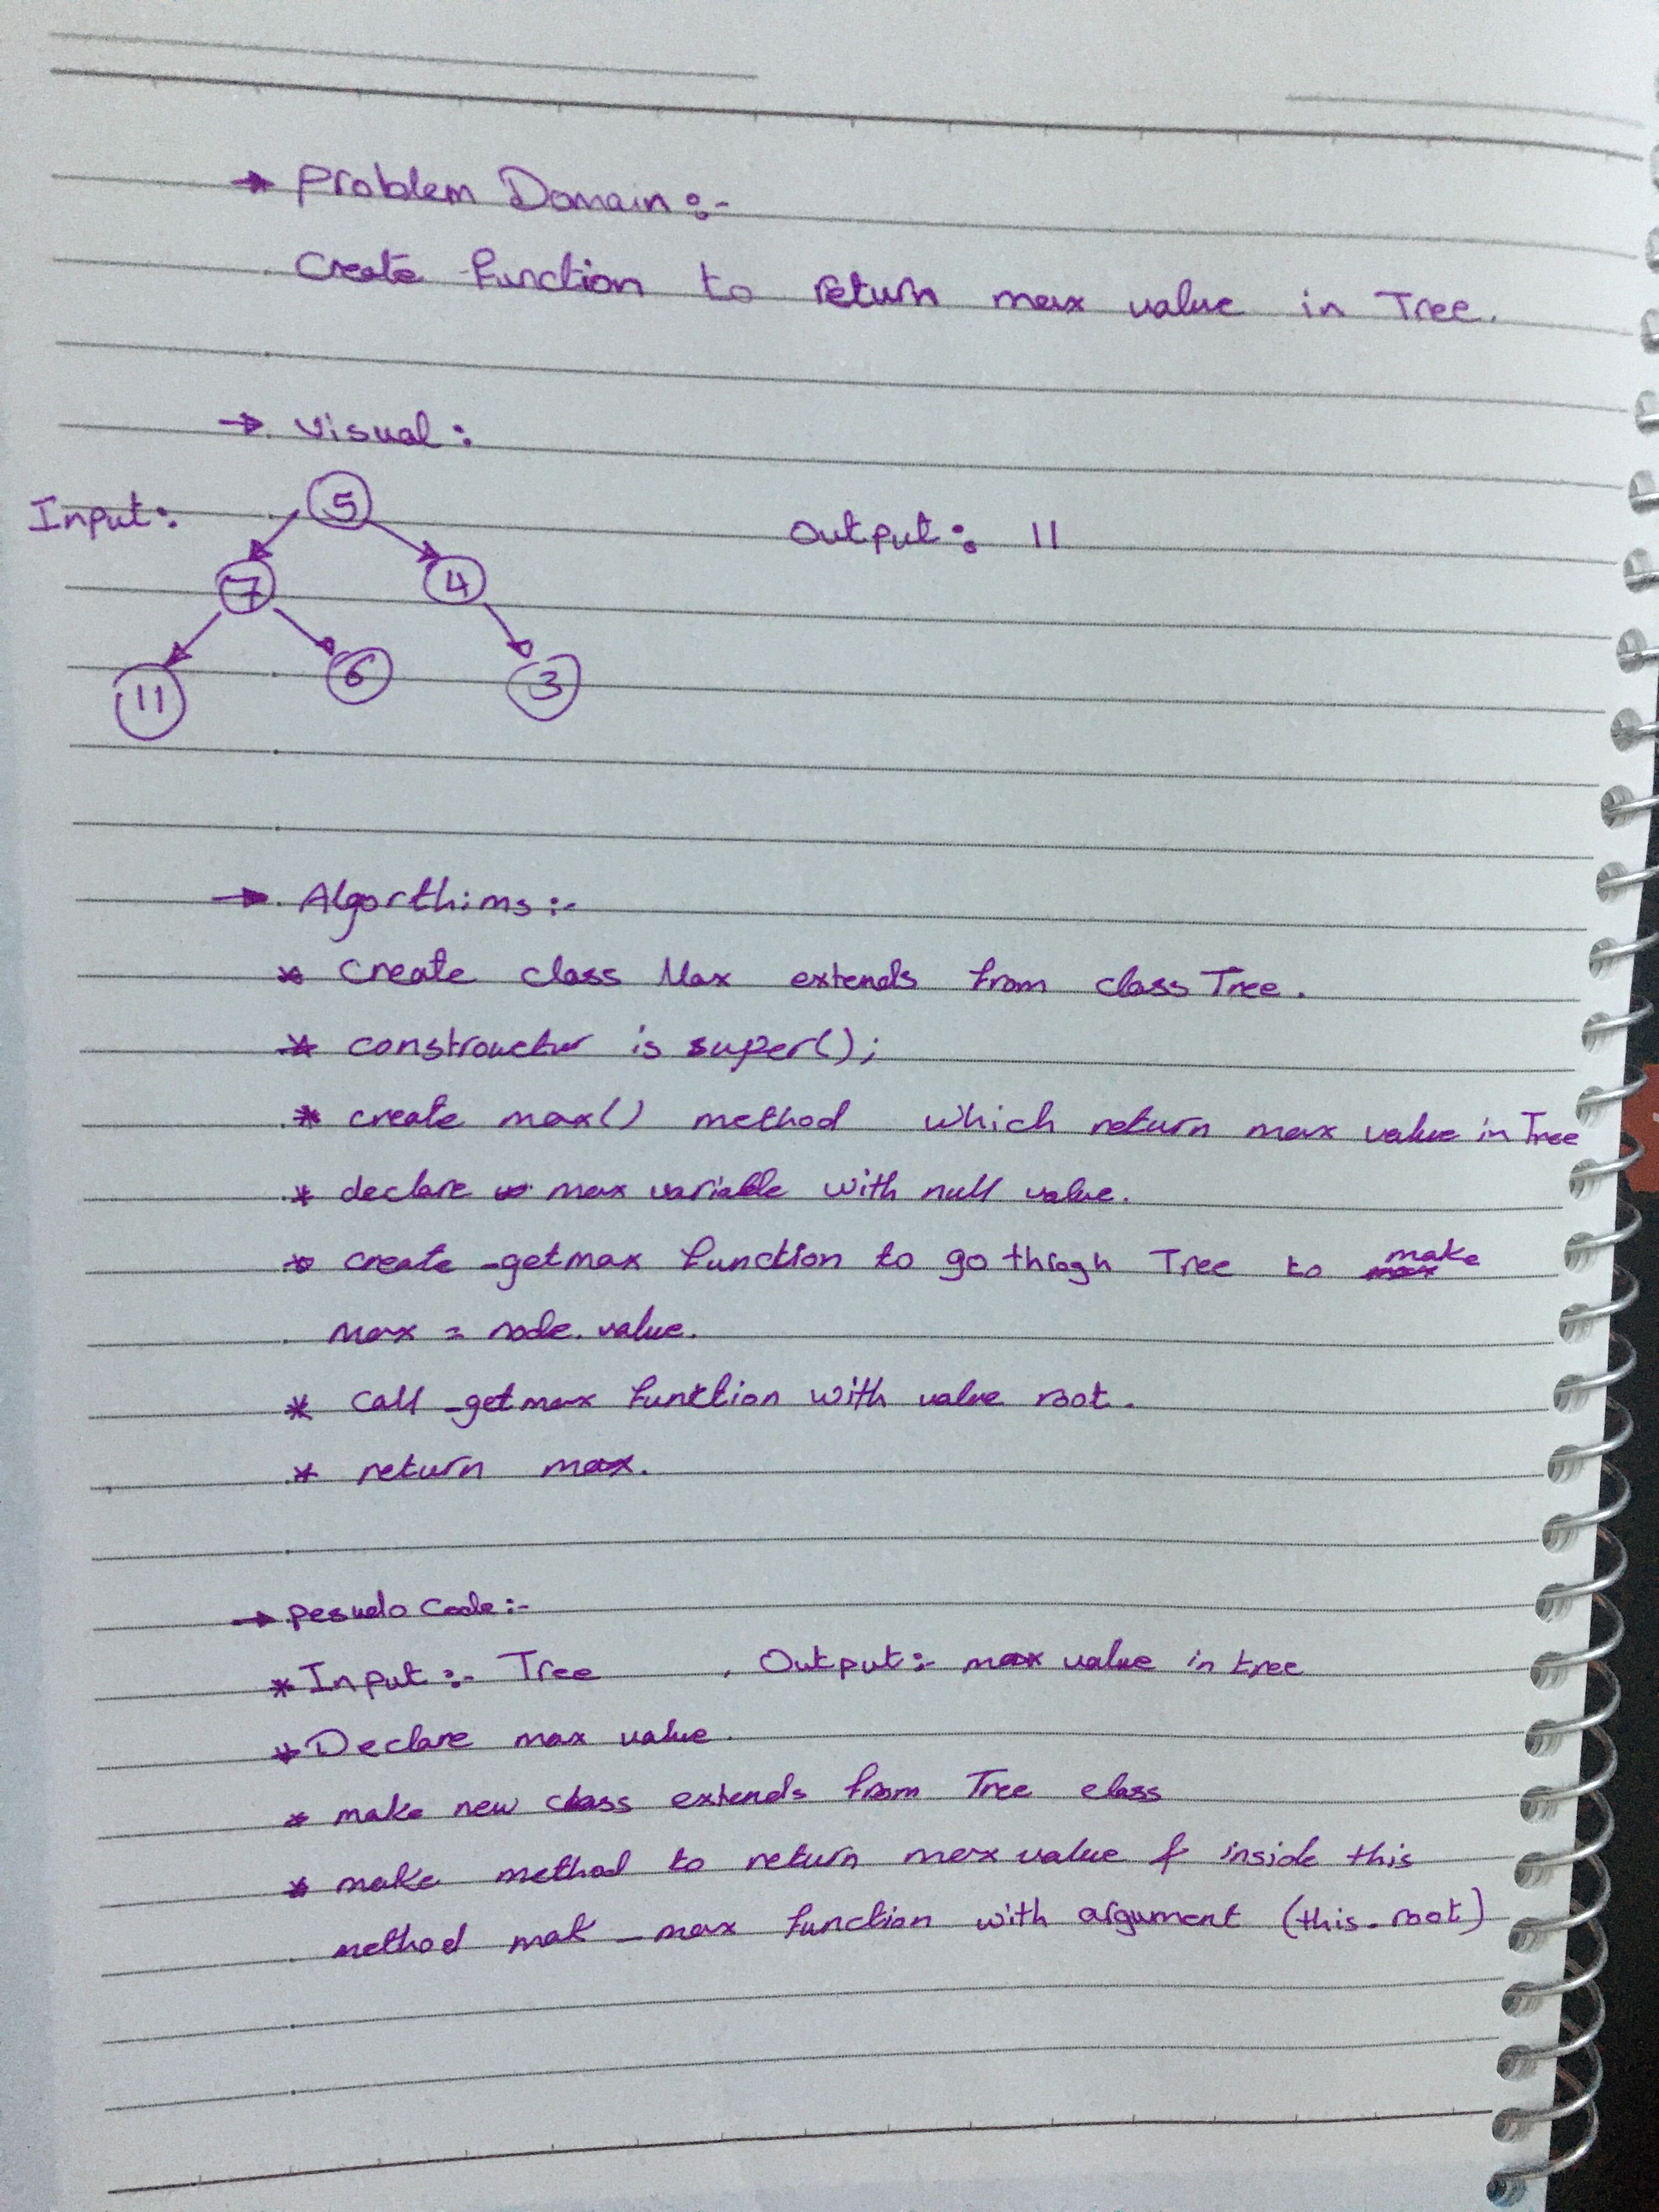 → Problem Domain :-
Create function to return max value in Tree.
→ Visual :
Input: 5 Output: 11
7 4
11 6 3
→ Algorthims :-
* Create class Max extends from class Tree.
* constructur is super();
* create max() method which return max value in Tree
* declare max variable with null value.
* create _getmax function to go throgh Tree to make
max = node.value.
* call _getmax function with value root.
* return max.
→ Pesudo Code :-
* Input :- Tree , Output :- max value in tree
* Declare max value.
* make new class extends from Tree class
* make method to return max value & inside this
method mak _max function with argument (this.root)